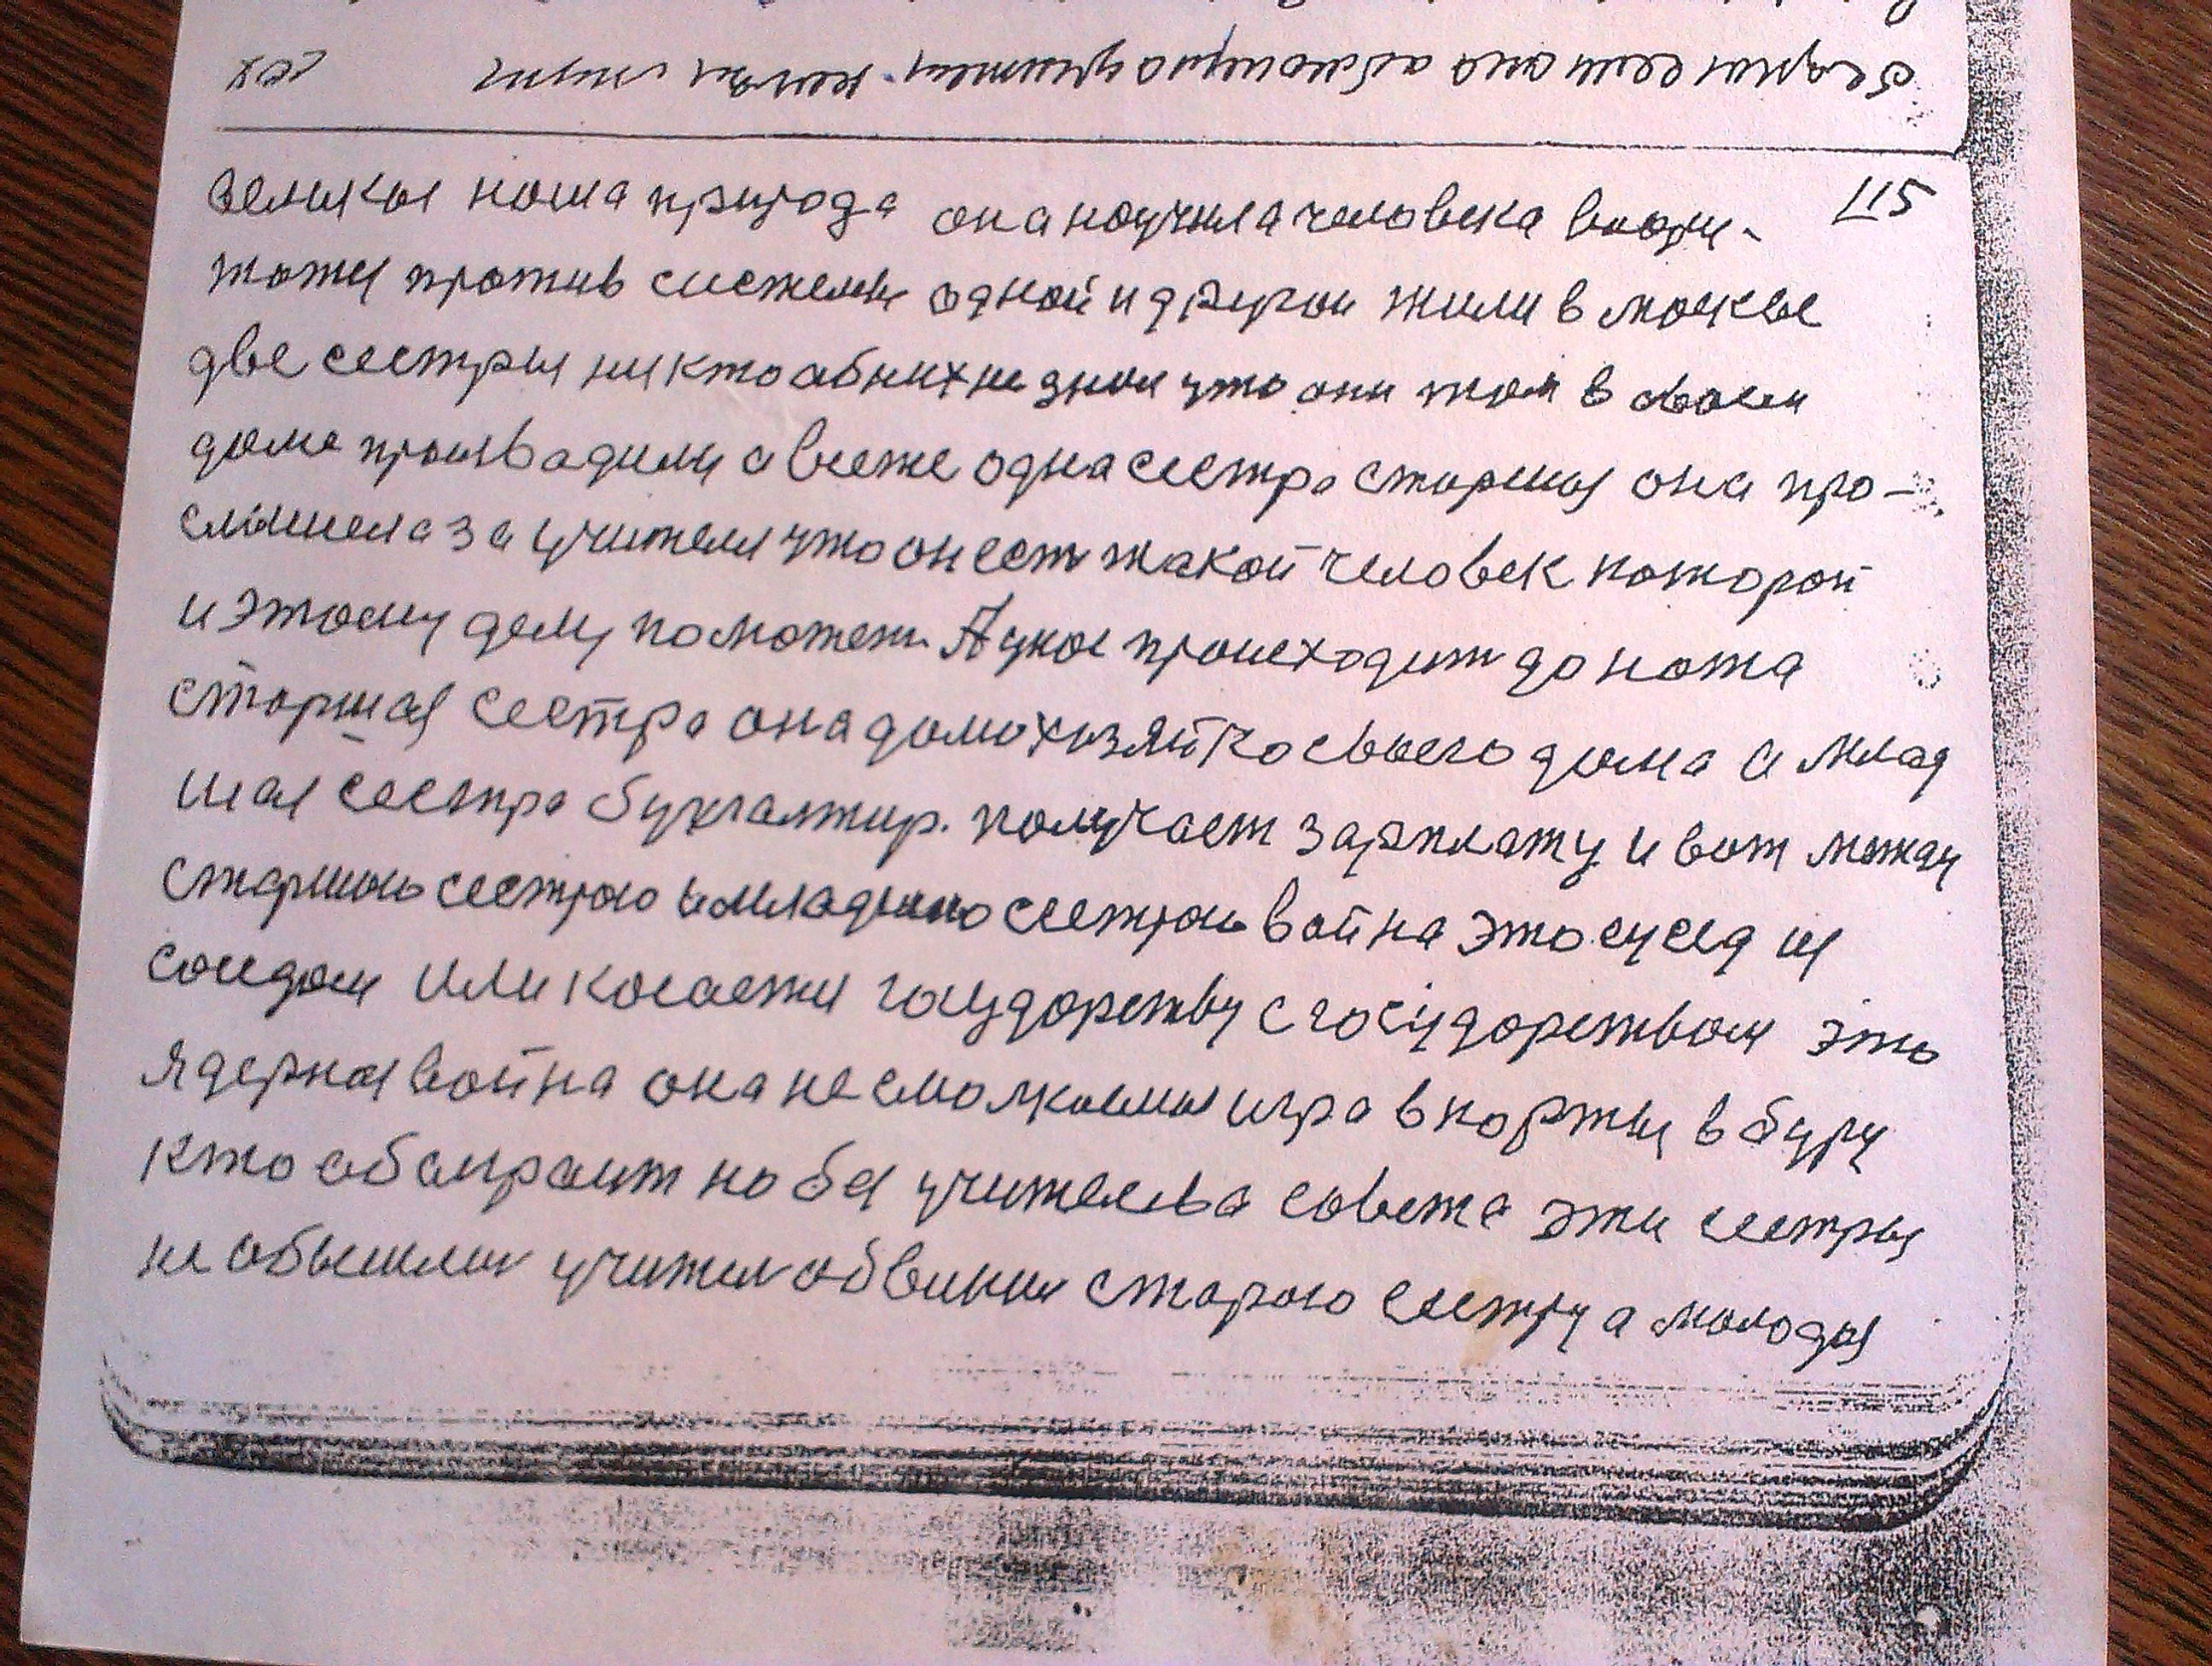 115
великая наша природа она научила человека
против системы одной и другой жили в москве
две сестры никто об них не знал что они там в своем
доме а вже одна сестра старшая она про-
слышела за учителя что он есть такой человек которой
и этому делу поможет. А у нас происходит до ножа
старшая сестра она домохозяйка своего дома а млад
шая сестра бухгалтир. получает зарплату и вот между
старшою сестрою и сестрою война это сусед из
соседом или касается государству с государством это
ядерная война она не игра в карты в буру
кто обыграит но без учителева совета эти сестры
не обошлись учитель обвинил старою сестру а молодая